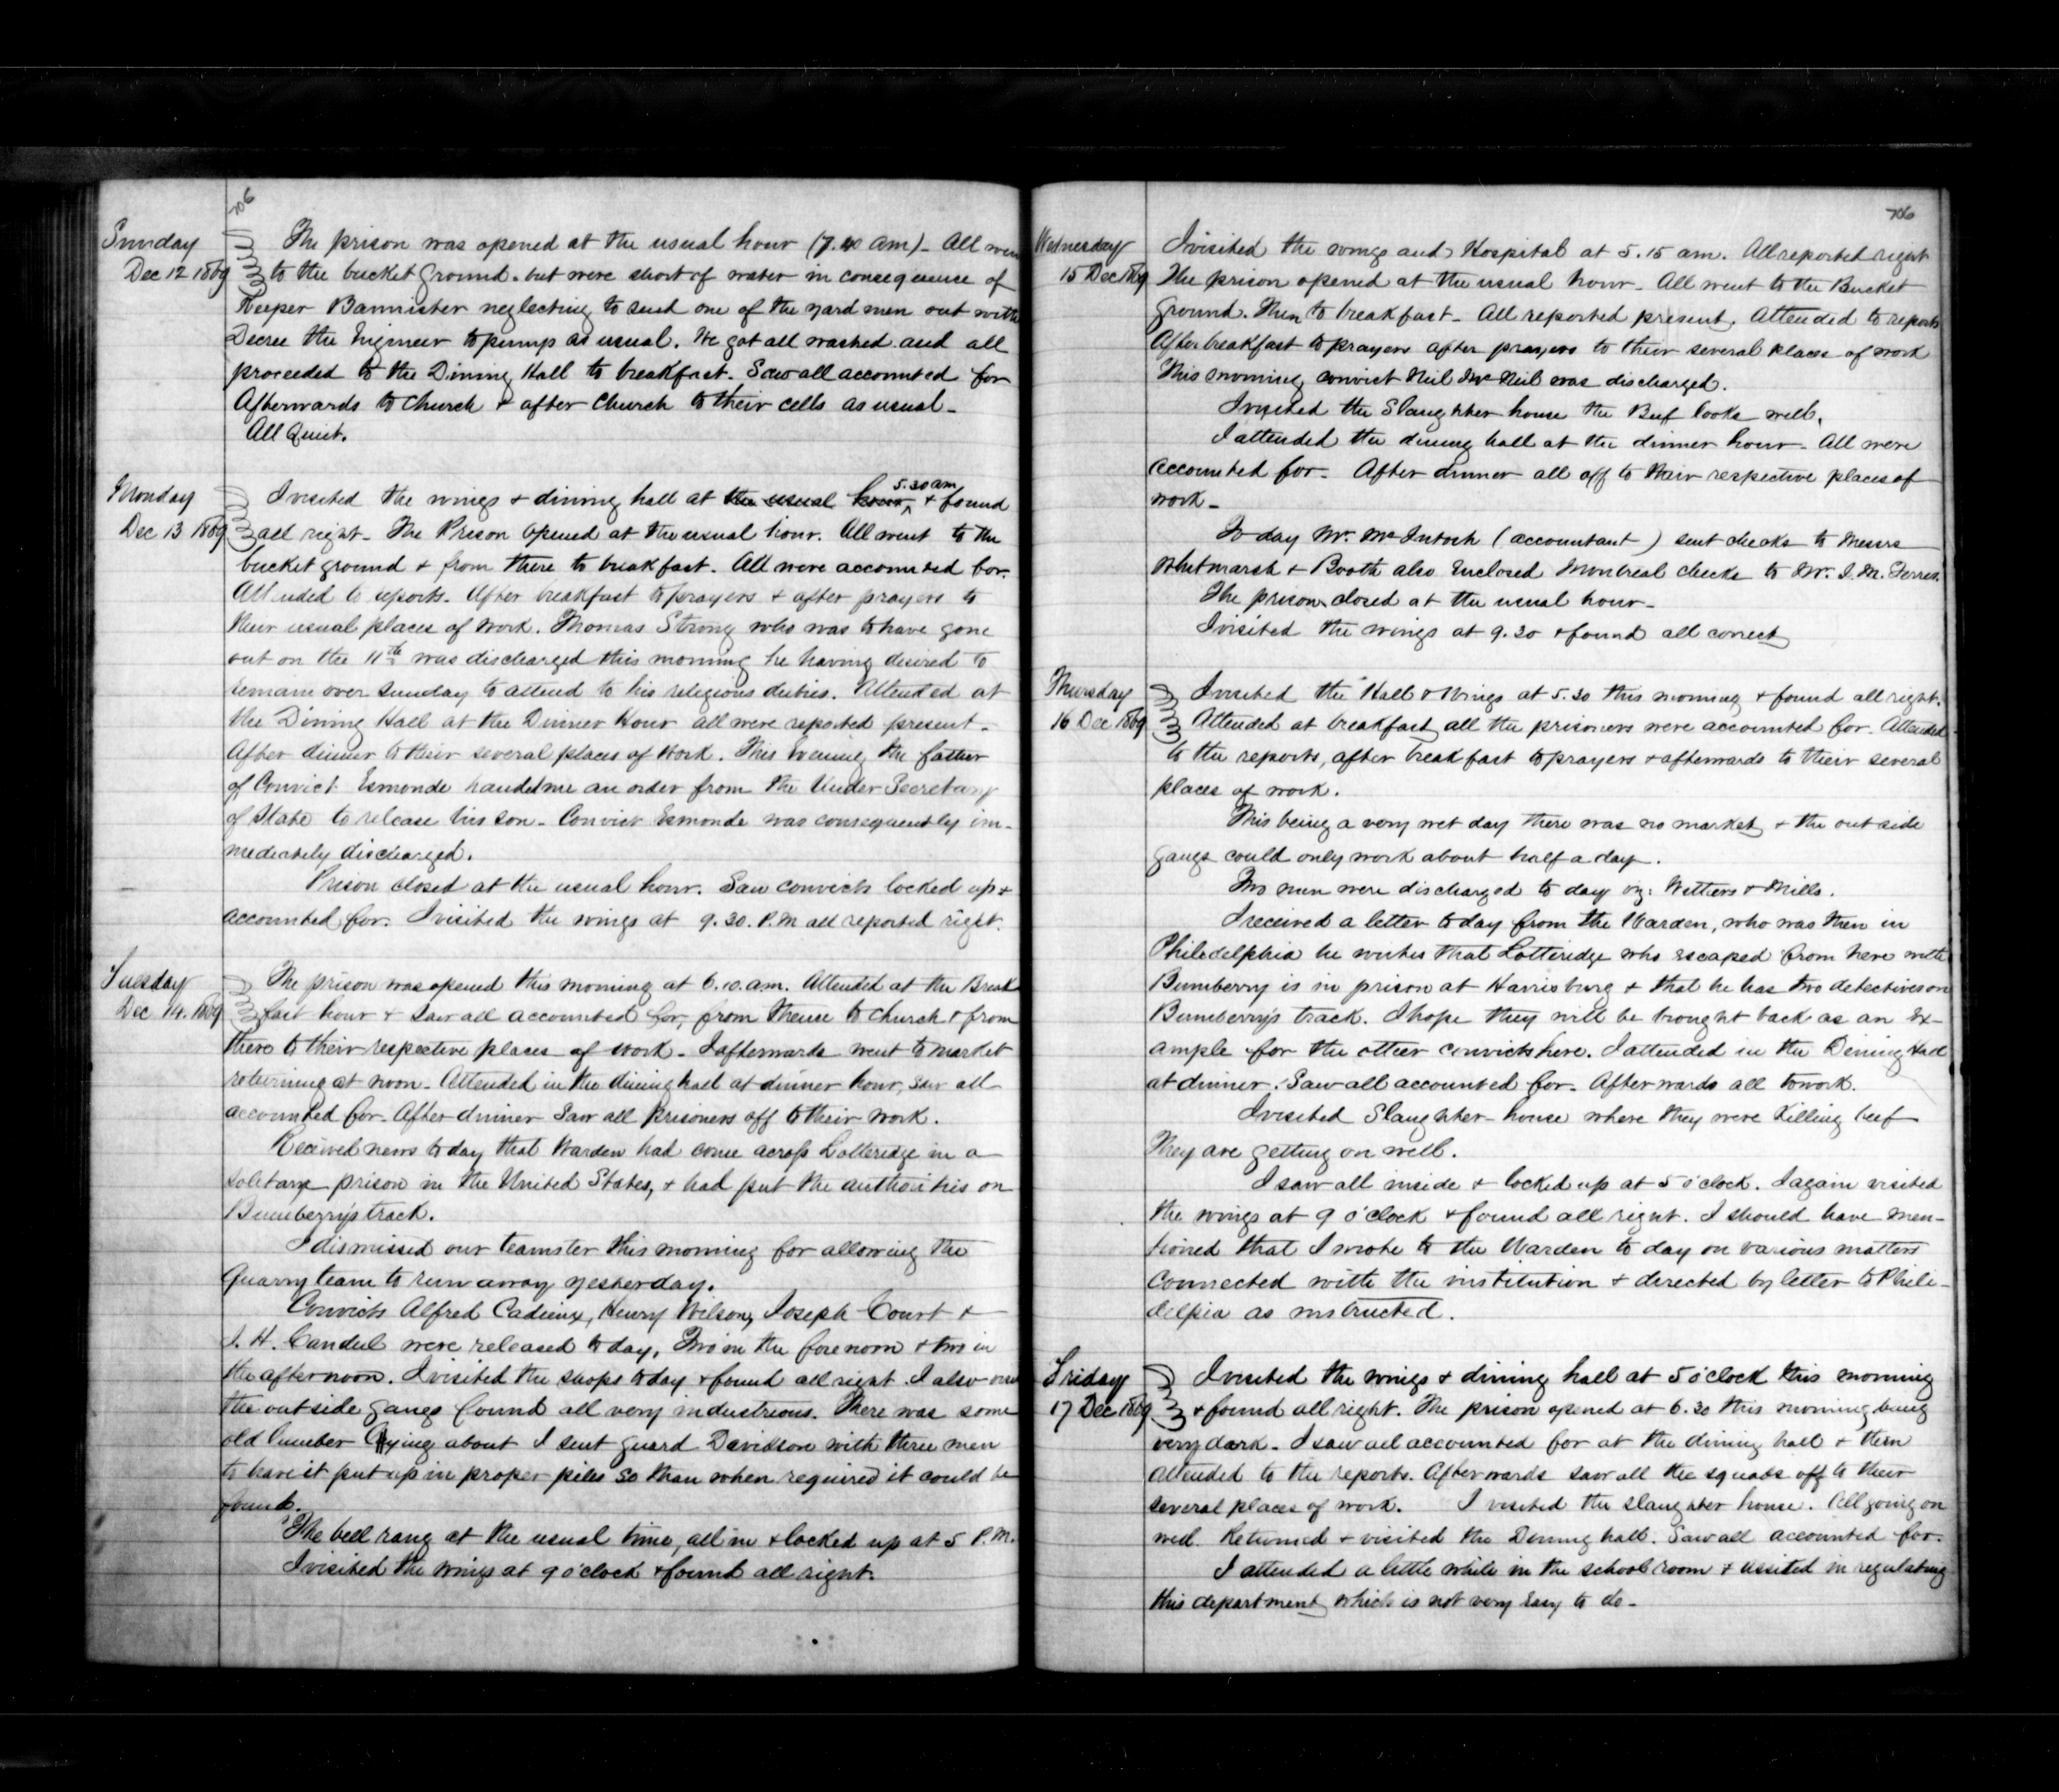 706
Sunday
Dec 12 1869
The prison was opened at the usual hour (7.40 am) - All went
to the bucket ground. but were short of water in consequence of
Keeper Bannister neglecting to send one of the yard men out with
Decree the Engineer to pump as usual. We got all washed and all
proceeded to the Dining Hall to breakfast. Saw all accounted for
Afterwards to Church & after Church to their cells as usual -
All Quiet.
Monday
Dec 13 1869
I visited the wings & dining hall at the usual hour 5.30 am & found
all right - The Prison opened at the usual hour. All went to the
bucket ground & from there to breakfast. All were accounted for.
Attended to reports. After breakfast to prayers & after prayers to
their usual places of work. Thomas Strong who was to have gone
out on the 11th was discharged this morning he having desired to
remain over Sunday to attend to his religious duties. Attended at
the Dining Hall at the Dinner Hour all were reported present -
After dinner to their several places of work. This evening the father
of Convict Esmonde handed me an order from the Under Secretary
of State to release his son - Convict Esmonde was consequently im-
mediately discharged.
Prison closed at the usual hour. Saw convicts locked up &
accounted for. I visited the wings at 9.30. P.M all reported right.
Tuesday
Dec 14. 1869
The prison was opened this morning at 6.10. a.m. Attended at the Break
fast hour & saw all accounted for, from thence to church & from
there to their respective places of work - I afterwards went to market
returning at noon - Attended in the dining hall at dinner hour, saw all
accounted for - After dinner saw all prisoners off to their work.
Received news to day that Warden had come across Lotteridge in a
solitary prison in the United States, & had put the authorities on
Bumberry's track.
I dismissed our teamster this morning for allowing the
Quarry team to run away yesterday.
Convicts Alfred Cadieux, Henry Wilson, Joseph Court &
J. H. were released to day, Two in the forenoon & two in
the afternoon. I visited the shops to day & found all right. I also
the outside gangs found all very industrious. There was some
old lumber lying about I sent guard Davidson with three men
to have it put up in proper piles so than when required it could be
found.
The bell rang at the usual time, all in & locked up at 5 P.M.
I visited the wings at 9 o'clock & found all right.
706
Wednesday
15 Dec 1869
I visited the wings and Hospital at 5.15 am. All reported right
The prison opened at the usual hour - All went to the Bucket
Ground. Then to breakfast - All reported present. Attended to reports
After breakfast to prayers after prayers to their several places of work
This morning convict Neil McNeil was discharged.
I visited the Slaughter house the Beef looks well.
I attended the dining hall at the dinner hour - All were
accounted for - After dinner all off to their respective places of
work -
To day Mr. McIntosh (accountant) sent checks to Messrs
Whitmarsh & Booth also Enclosed Montreal checks to Mr. J. M.
The prison closed at the usual hour -
I visited the wings at 9.30 & found all correct
Thursday
16 Dec 1869
I visited the Hall & Wings at 5.30 this morning & found all right.
Attended at breakfast all the prisoners were accounted for - Attended
to the reports, after breakfast to prayers & afterwards to their several
places of work.
This being a very wet day there was no market & the outside
gangs could only work about half a day.
Two men were discharged to day viz: Withers & Mills.
I received a letter to day from the Warden, who was then in
Philedelphia he writes that Lotteridge who escaped from here with
Bumberry is in prison at Harrisburg & that he has two detectives on
Bumberry's track. I hope they will be brought back as an Ex-
ample for the other convicts here. I attended in the Dining Hall
at dinner. Saw all accounted for - Afterwards all to work.
I visited Slaughter-house where they were Killing beef
They are getting on well.
I saw all inside & locked up at 5 o'clock. I again visited
the wings at 9 o'clock & found all right. I should have men-
tioned that I wrote to the Warden to day on various matters
connected with the institution & directed by letter to Phile-
delpia as instructed.
Friday
17 Dec 1869
I visited the wings & dining hall at 5 o'clock this morning
& found all right. The prison opened at 6.30 this morning being
very dark - I saw all accounted for at the dining hall & then
attended to the reports. Afterwards saw all the squads off to their
several places of work. I visited the slaughter house. All going on
well. Returned & visited the Dining hall. Saw all accounted for.
I attended a little while in the school room & assisted in regulating
this department which is not very Easy to do -